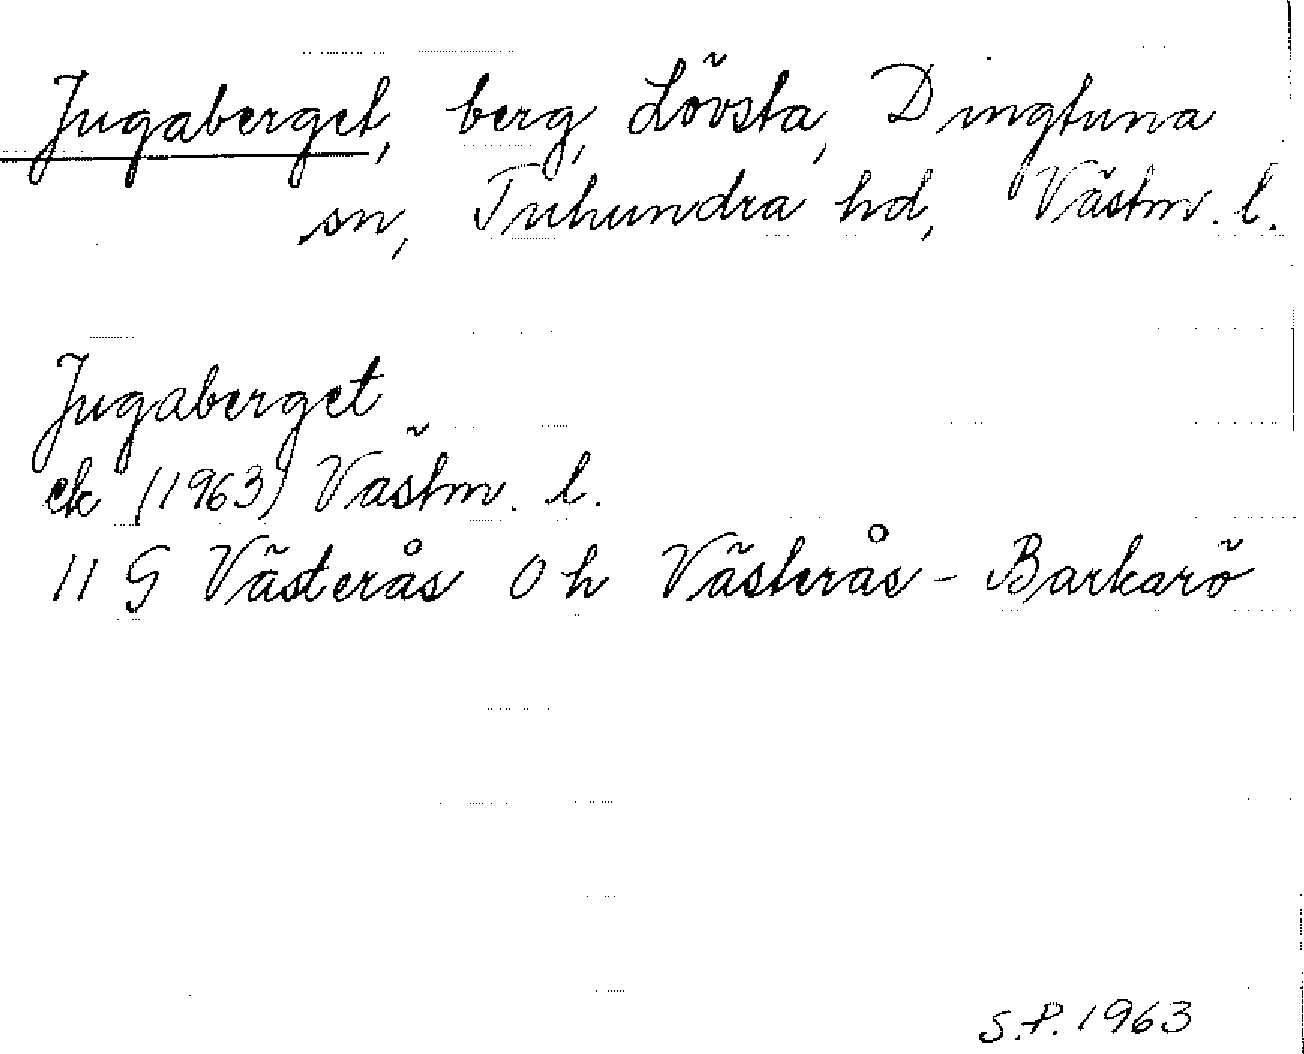 Jugaberget, berg, Lövsta, Dingtuna
sn, Tuhundra hd, Västm. l.
Jugaberget
ek (1963) Västm. l.
11 G Västerås 0 h Västerås - Barkarö
S.P. 1963